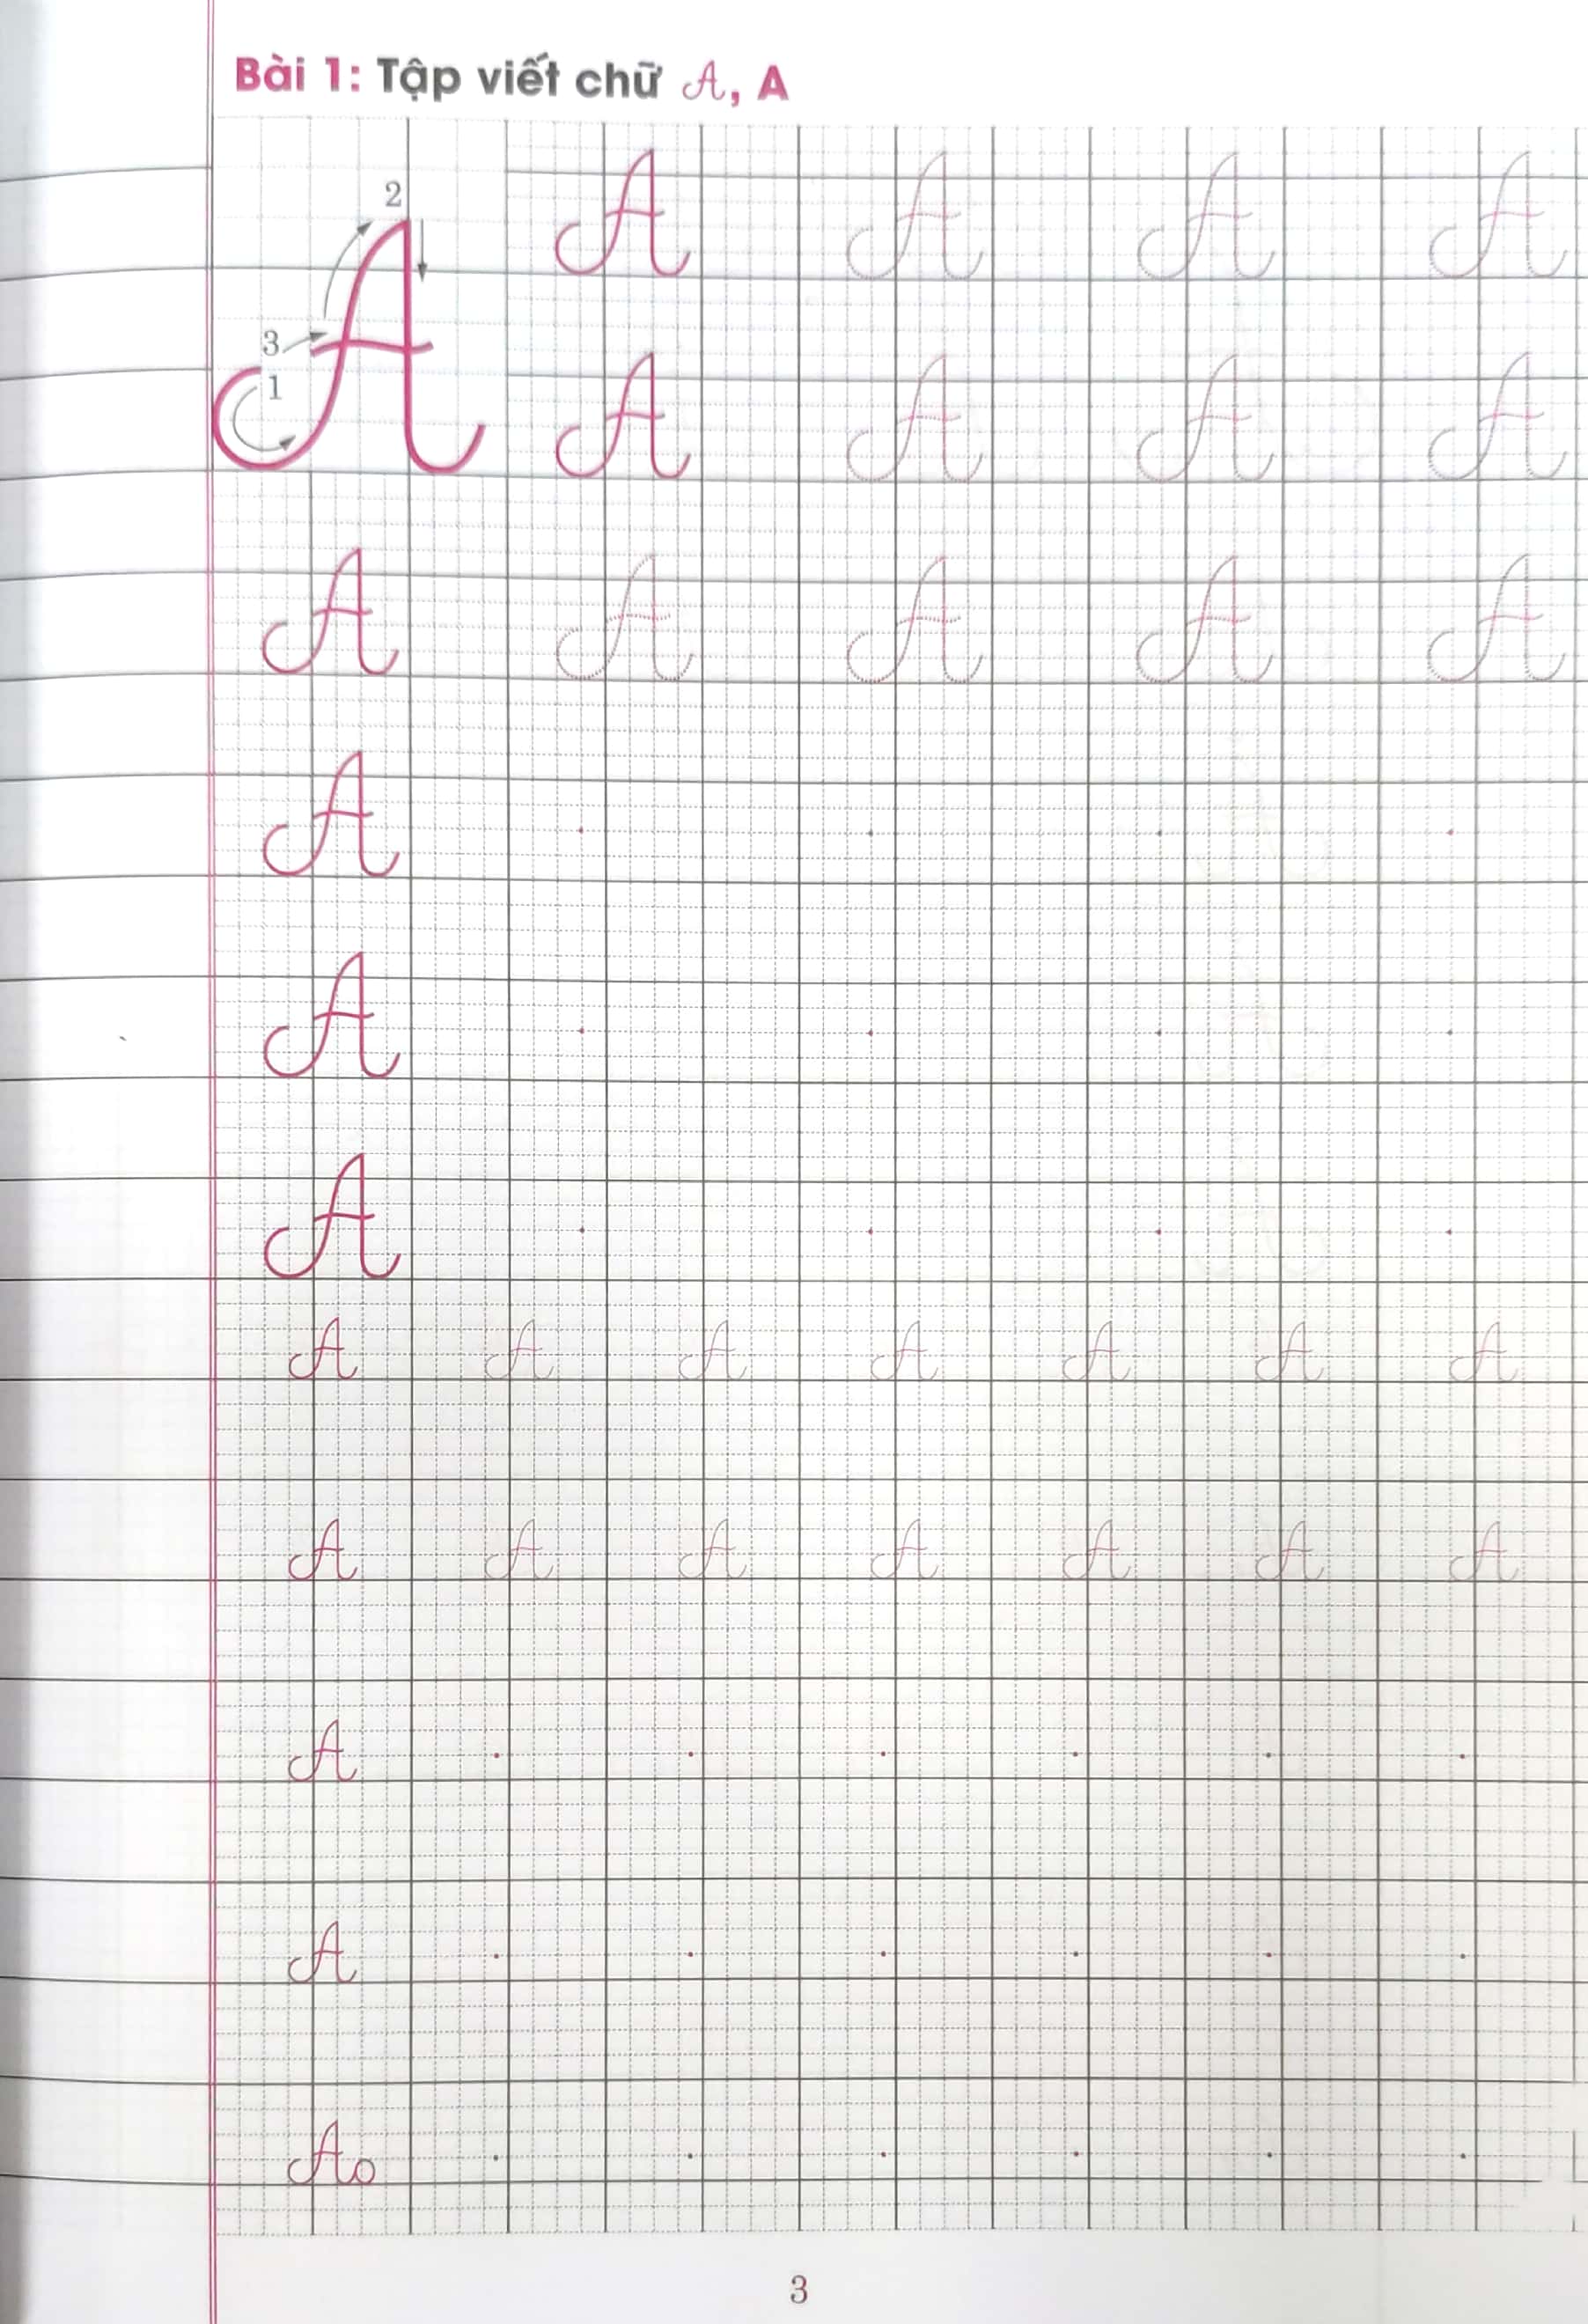 Bài 1: Tập viết chữ A, A
2
3
1
A A A A A
A A A A
A A A A A
A
A
A
A A A A A A A
A A A A A A A
A
A
Ao
3